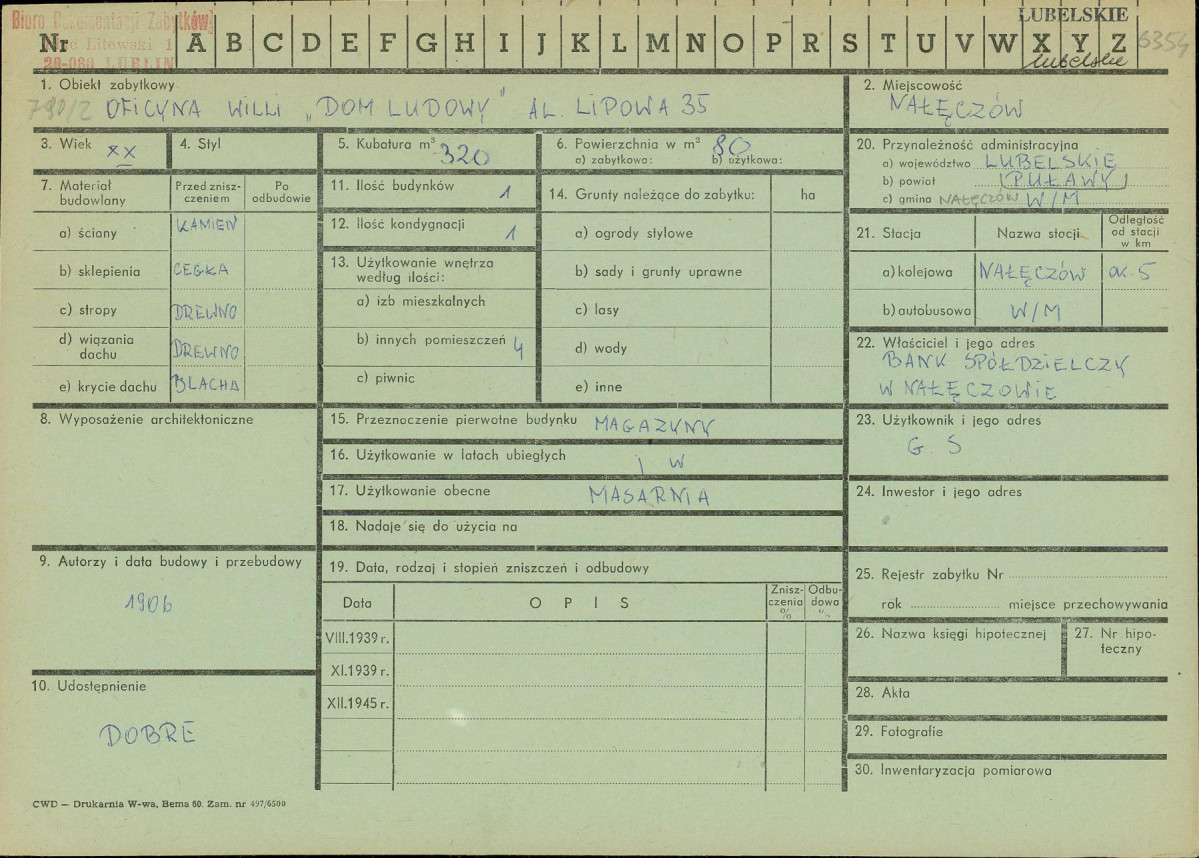 Biuro Dokumentacji Zabytków
Litewski 1
20-080 LUBLIN
Nr A B C D E F G H I J K L M N O P R S T U V W X Y Z
LUBELSKIE
lubelskie
6354
1. Obiekt zabytkowy
790/2 OFICYNA WILLI „DOM LUDOWY" AL. LIPOWA 35
2. Miejscowość
NAŁĘCZÓW
3. Wiek XX
4. Styl
5. Kubatura m³ 320
6. Powierzchnia w m² 80
a) zabytkowa: b) użytkowa:
20. Przynależność administracyjna
a) województwo LUBELSKIE
b) powiat PUŁAWY
c) gmina NAŁĘCZÓW W/M
7. Materiał budowlany
Przed zniszczeniem
Po odbudowie
a) ściany KAMIEŃ
b) sklepienia CEGŁA
c) stropy DREWNO
d) wiązania dachu DREWNO
e) krycie dachu BLACHA
11. Ilość budynków 1
12. Ilość kondygnacji 1
13. Użytkowanie wnętrza według ilości:
a) izb mieszkalnych
b) innych pomieszczeń 4
c) piwnic
14. Grunty należące do zabytku: ha
a) ogrody stylowe
b) sady i grunty uprawne
c) lasy
d) wody
e) inne
21. Stacja
Nazwa stacji
Odległość od stacji w km
a) kolejowa NAŁĘCZÓW ok. 5
b) autobusowa W/M
22. Właściciel i jego adres
BANK SPÓŁDZIELCZY
W NAŁĘCZOWIE
8. Wyposażenie architektoniczne
15. Przeznaczenie pierwotne budynku MAGAZYNY
16. Użytkowanie w latach ubiegłych j w
17. Użytkowanie obecne MASARNIA
18. Nadaje się do użycia na
23. Użytkownik i jego adres
G. S
24. Inwestor i jego adres
9. Autorzy i data budowy i przebudowy
1906
19. Data, rodzaj i stopień zniszczeń i odbudowy
Data
O P I S
Zniszczenia %
Odbudowa %
VIII.1939 r.
XI.1939 r.
XII.1945 r.
25. Rejestr zabytku Nr
rok miejsce przechowywania
26. Nazwa księgi hipotecznej
27. Nr hipoteczny
10. Udostępnienie
DOBRE
28. Akta
29. Fotografie
30. Inwentaryzacja pomiarowa
CWD — Drukarnia W-wa, Bema 60. Zam. nr 497/6500